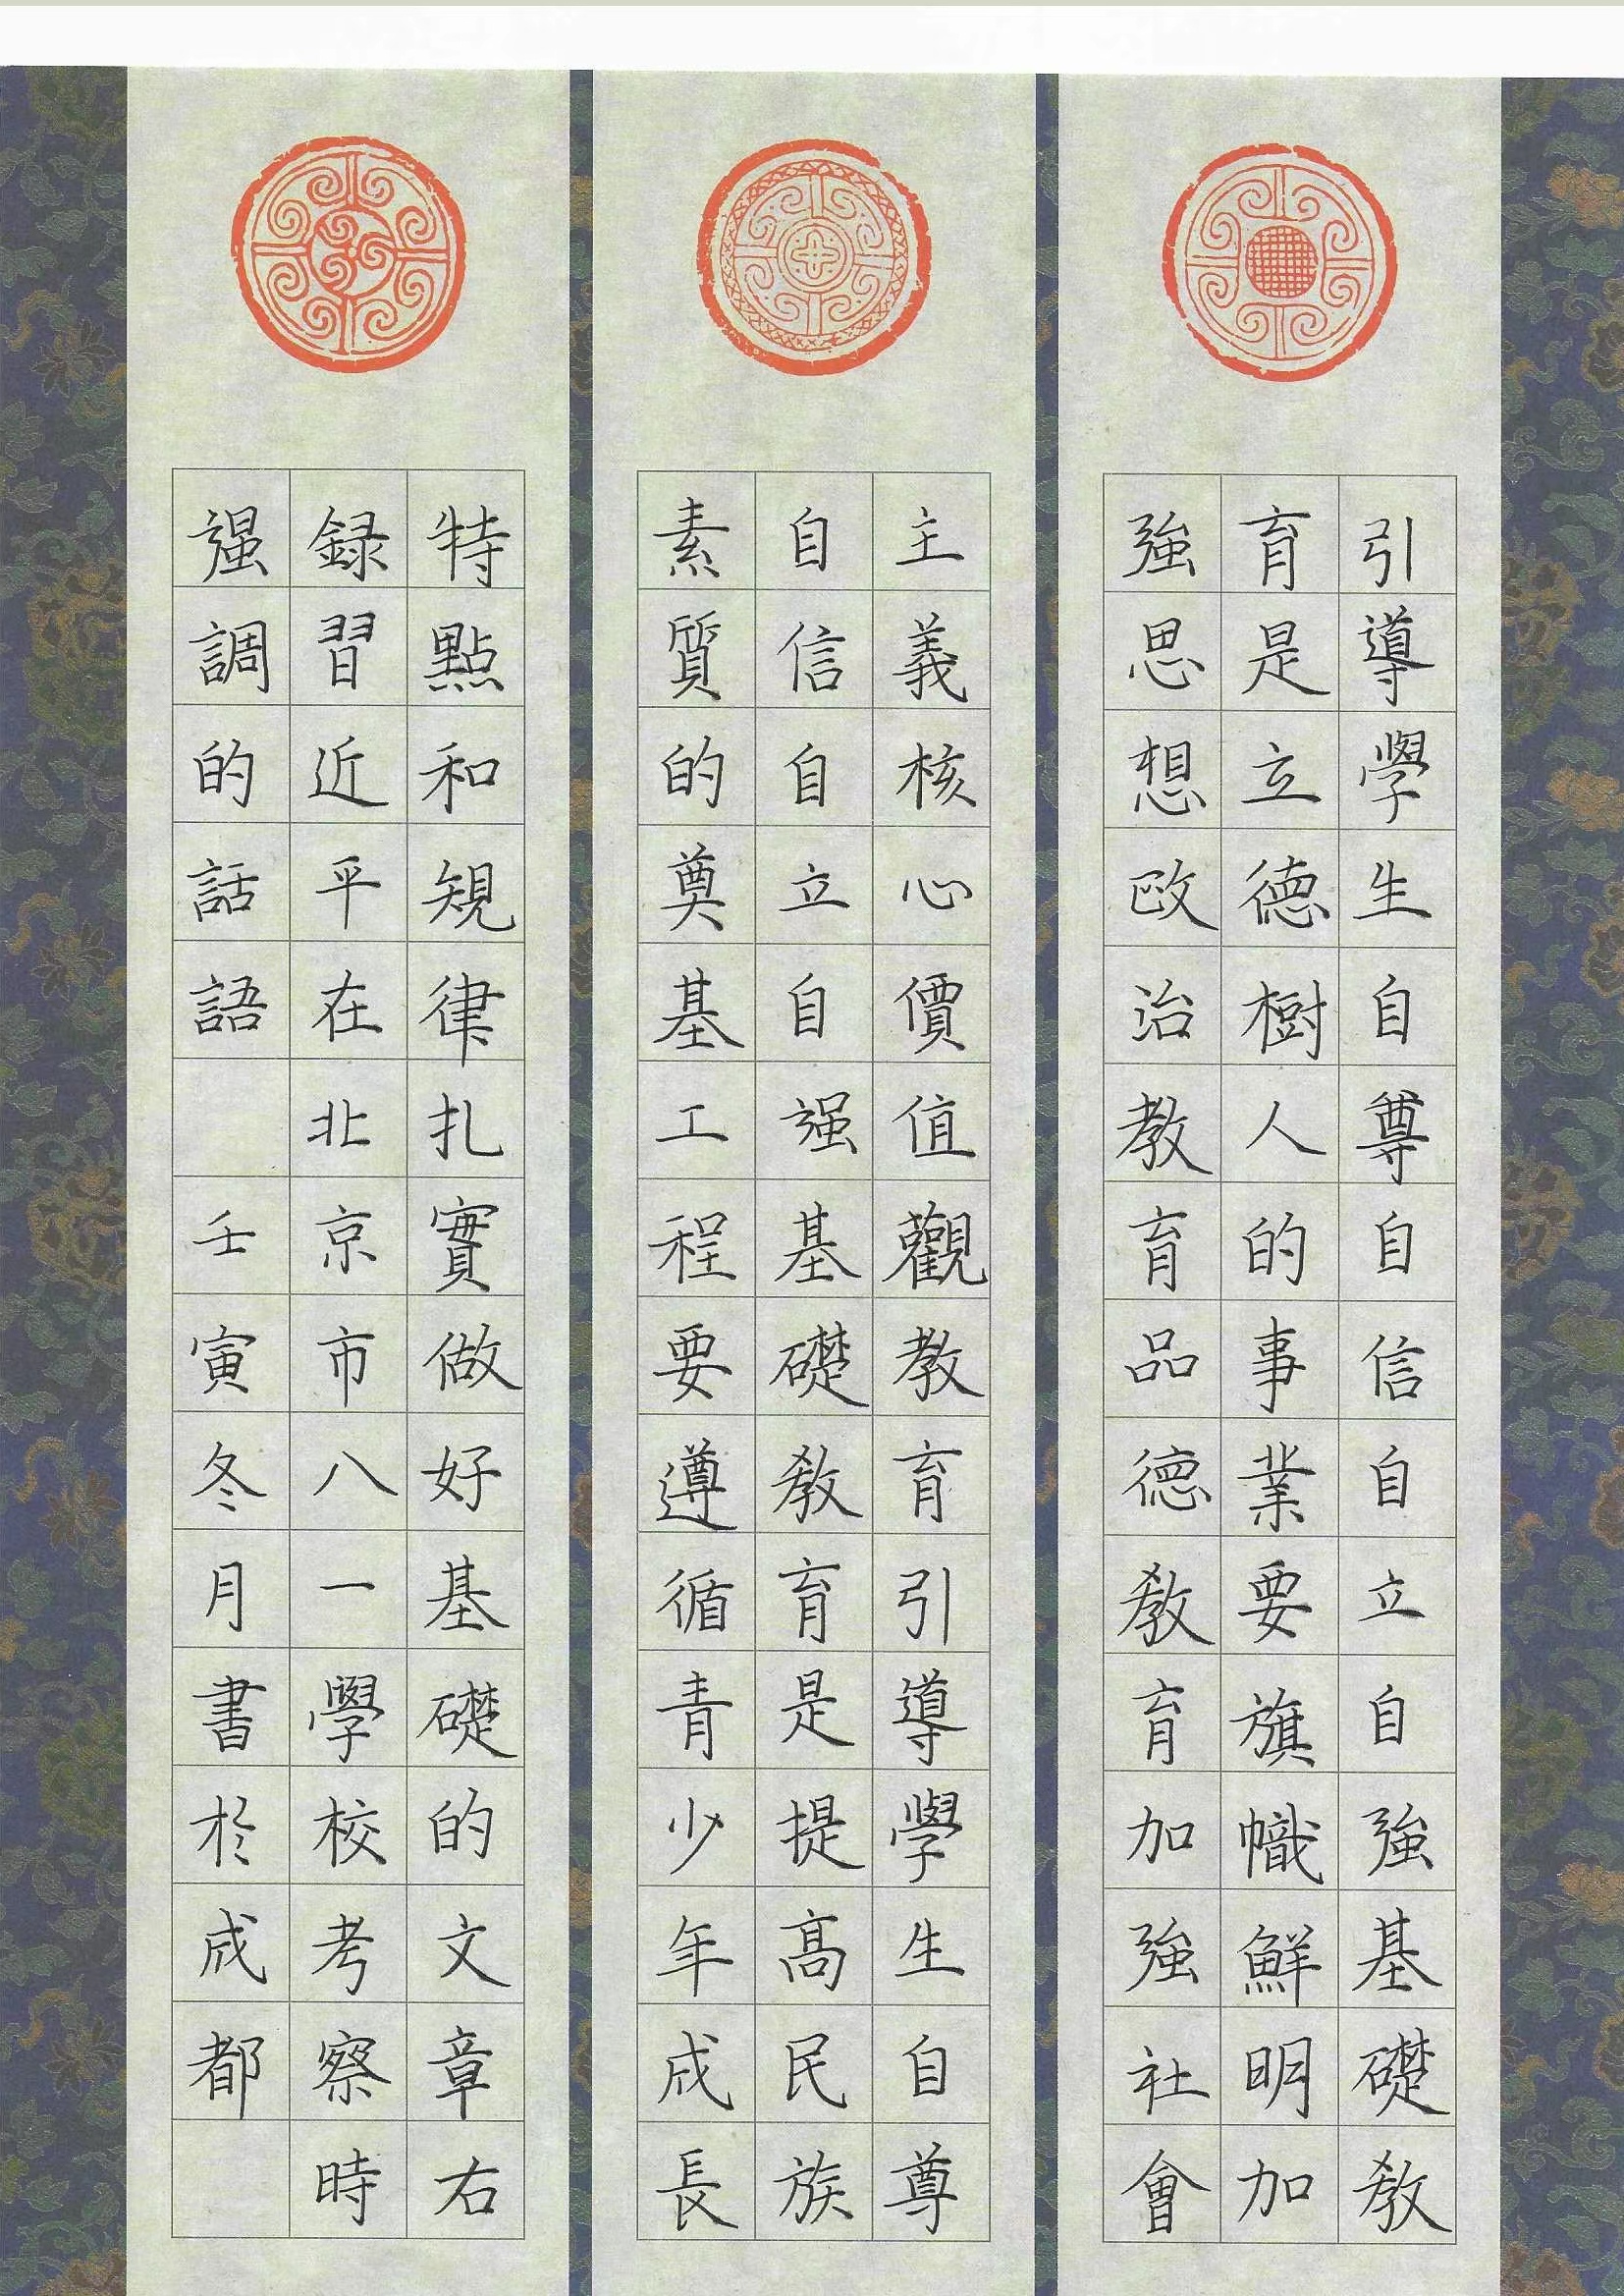 引導學生自尊自信自立自強基礎教
育是立德樹人的事業要旗幟鮮明加
強思想政治教育品德教育加強社會
主義核心價值觀教育引導學生自尊
自信自立自强基礎教育是提高民族
素質的奠基工程要遵循青少年成長
特點和規律扎實做好基礎的文章右
録習近平在北京市八一學校考察時
强調的話語 壬寅冬月書於成都